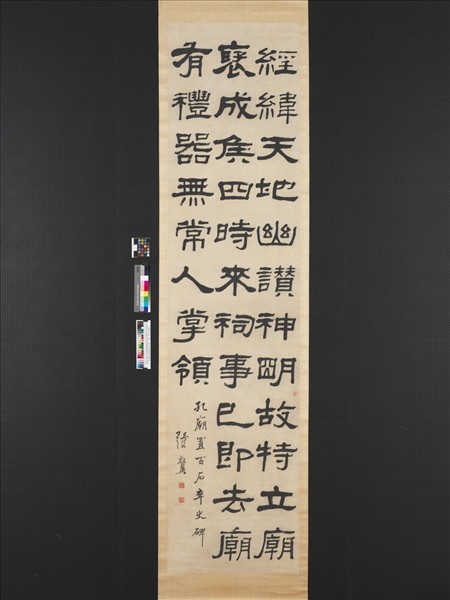 經緯天地幽讚神明故特立廟
褒成侯四時來祠事已即去廟
有禮器無常人掌領
孔廟置百石卒史碑
張